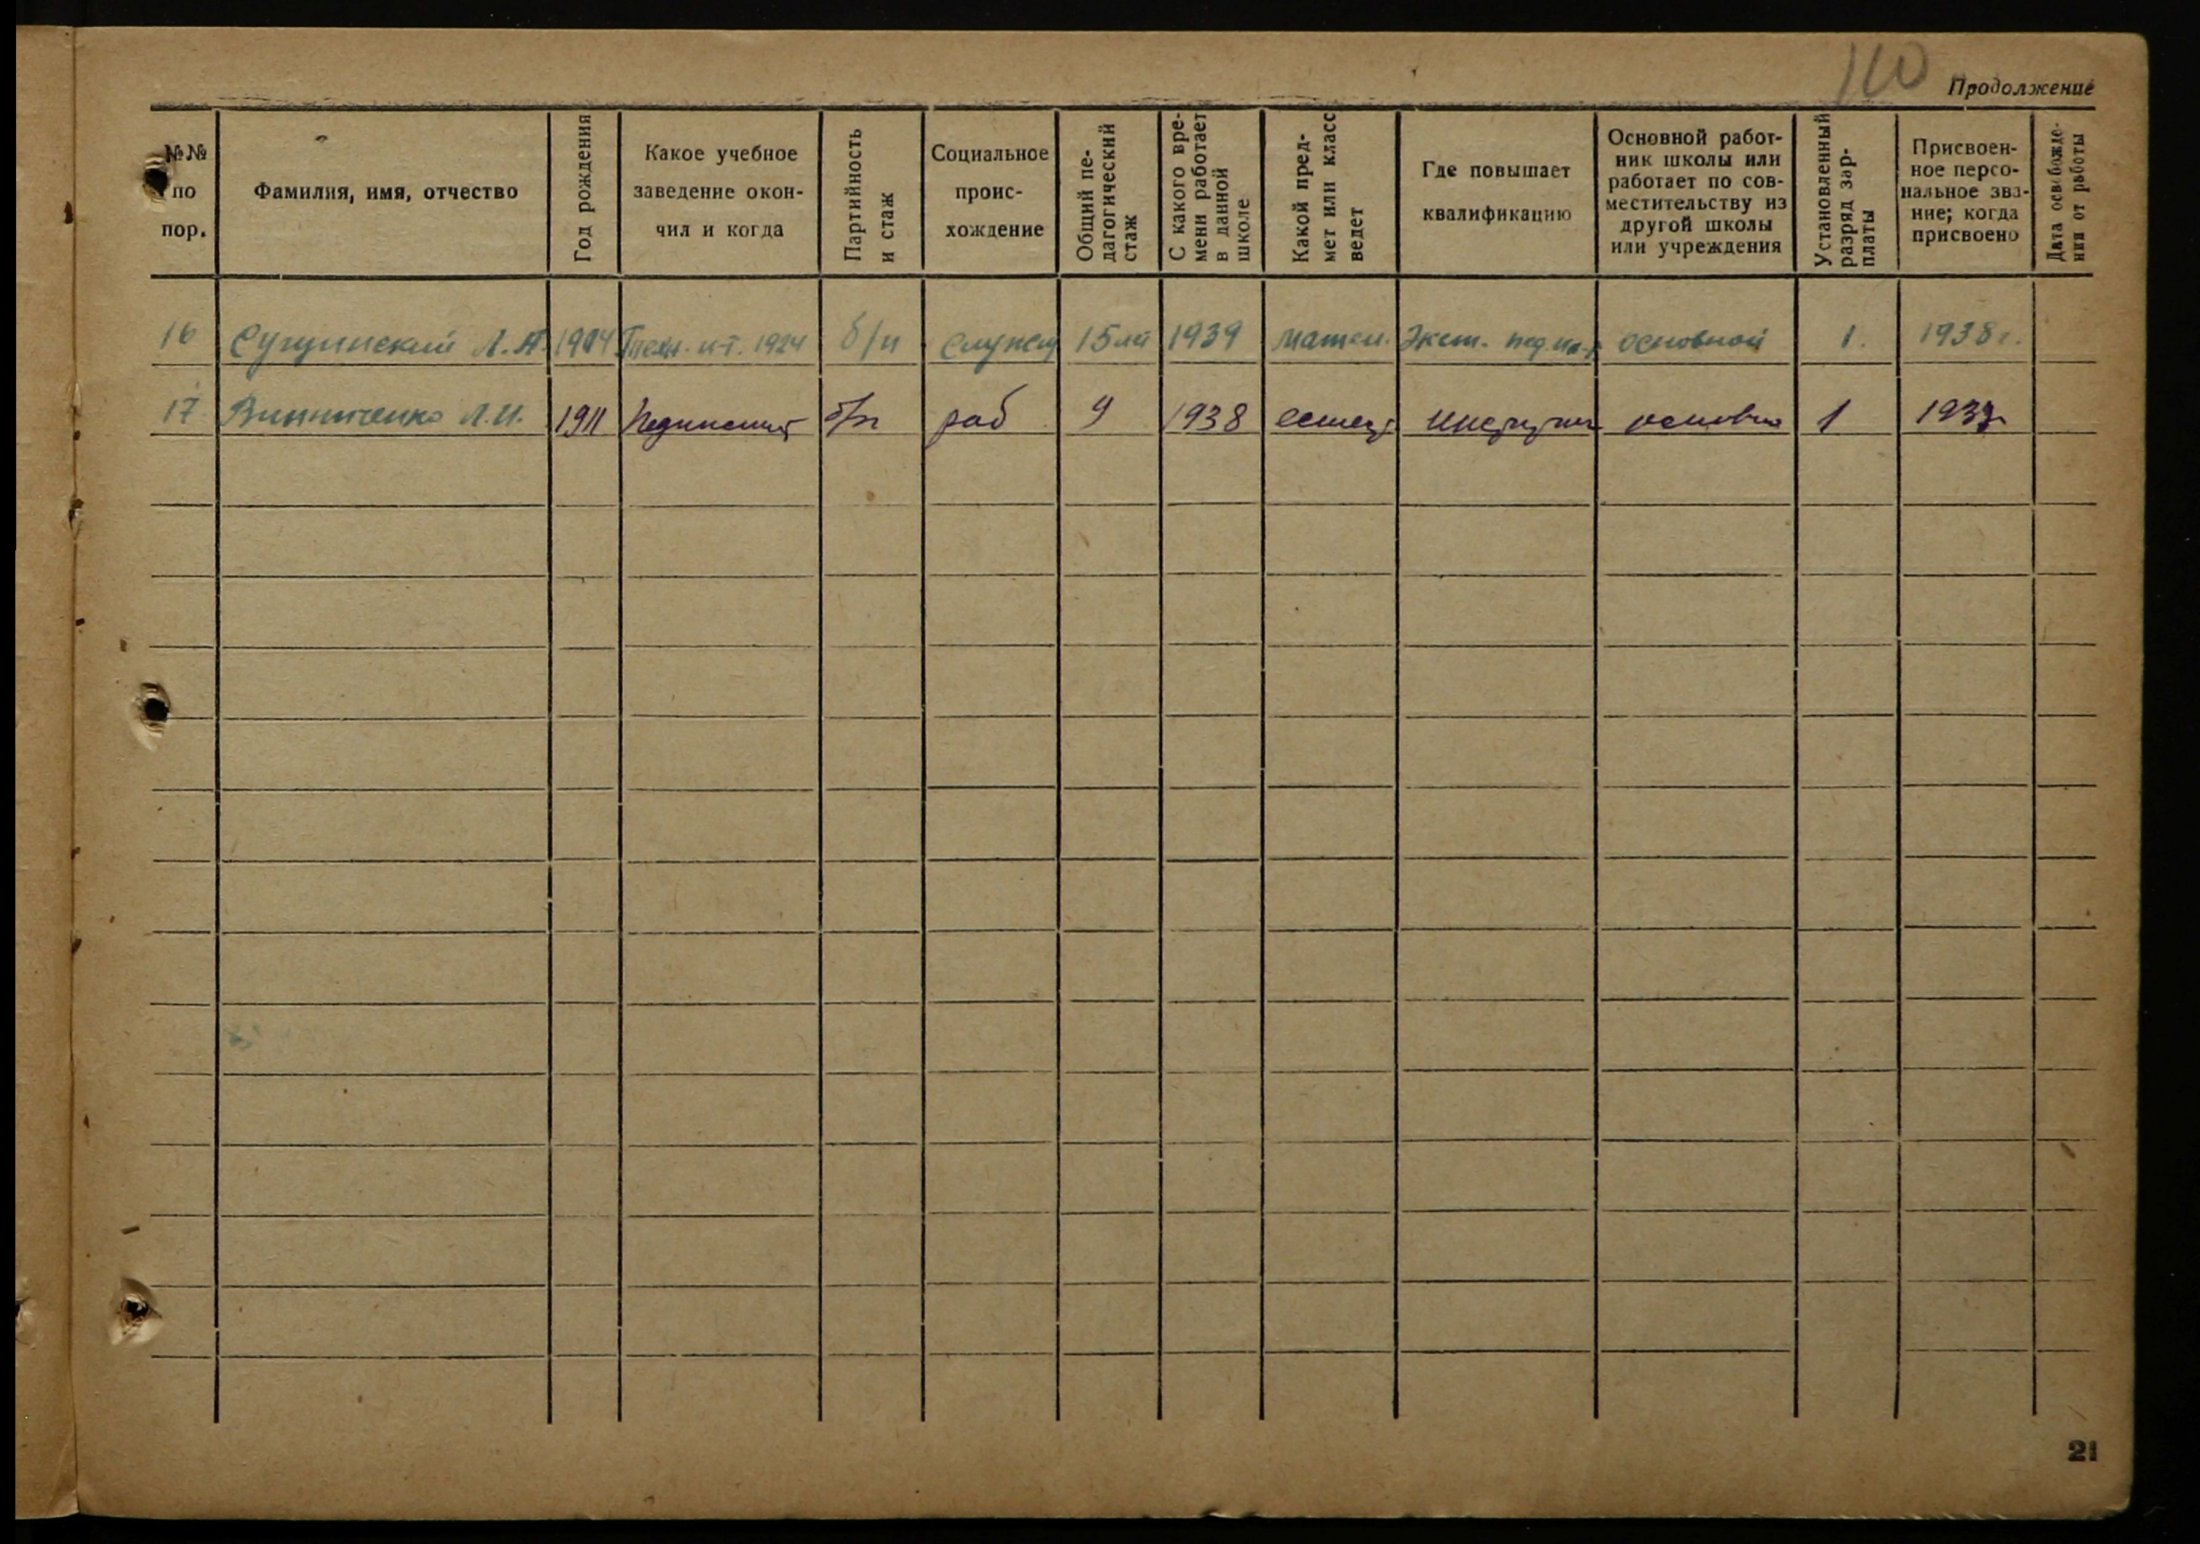 110
Продолжение
№№ по пор.
Фамилия, имя, отчество
Год рождения
Какое учебное заведение окон-
чил и когда
Партийность и стаж
Социальное проис-
хождение
Общий пе-
дагогический стаж
С какого вре-
мени работает в данной школе
Какой пред-
мет или класс ведет
Где повышает квалификацию
Основной работ-
ник школы или работает по сов-
местительству из другой школы или учреждения
Установленный разряд зар-
платы
Присвоен-
ное персо-
нальное зва-
ние; когда присвоено
Дата освобожде-
ния от работы
16 1924 б/п служ 15 1939 матем. Экст. пед. основной 1. 1938 г.
17 Винниченко Л.И. 1911 Пединститут б/п раб 9 1938 1
21